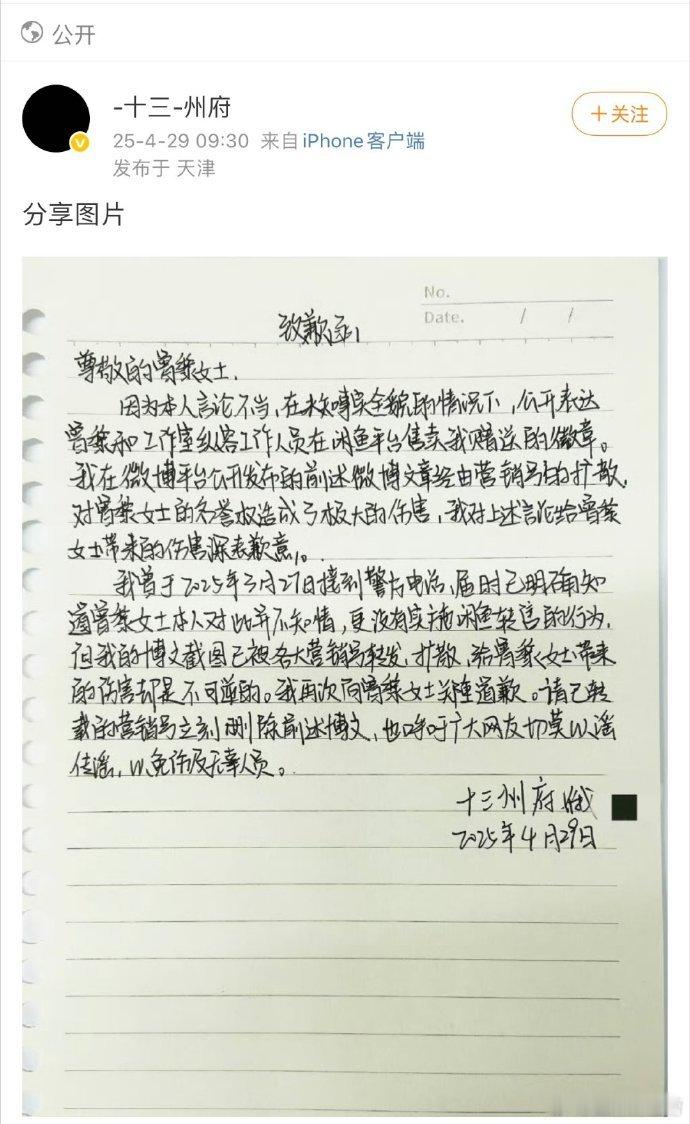 公开
-十三-州府
+关注
25-4-29 09:30 来自 iPhone客户端
发布于 天津
分享图片
No.
Date. / /
致歉函
尊敬的曾黎女士.
因为本人言论不当,在未知事实全貌的情况下,公开表达
曾黎和工作室纵容工作人员在闲鱼平台售卖我赠送的徽章。
我在微博平台公开发布的前述微博文章经由营销号的扩散,
对曾黎女士的名誉权造成了极大的伤害,我对上述言论给曾黎
女士带来的伤害深表歉意。
我曾于2025年3月27日接到警方电话,届时已明确知
道曾黎女士本人对此并不知情,更没有实施闲鱼转售的行为,
但我的博文截图已被各大营销号转发,扩散,给曾黎女士带来
的伤害却是不可逆的。我再次向曾黎女士道歉。请已转
载的营销号立刻删除前述博文,也呼吁广大网友切莫以谣
传谣,以免涉及无辜人员。
十三州府
2025年4月29日